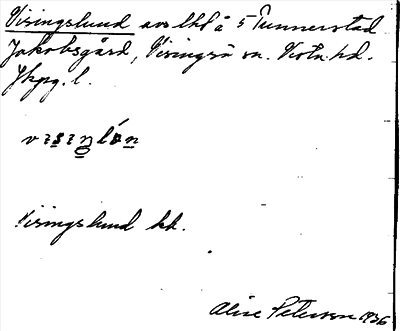 Visingslund avs. lht å 5 Tunnerstad
Jakobsgård, Visingsö sn. Vista hd.
Jkpg. l.
Visingslund hk.
Alice Peterson 1936